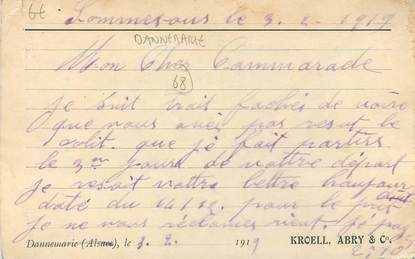 6€
Sommersous le 3. 2. 1919
DANNEMARIE
Mon Cher Cammarade
68
je suit trais fachés de votre
que vous avez pas resut le
colit. que je fait partirs
le 3me jours de vottre départ
je resoit vottre lettre haujour
daté du 14/12. pour le
je ne vous réclames rient. jé
Dannemarie (Alsace), le 3. 2. 1919 KROELL, ABRY & Cie.